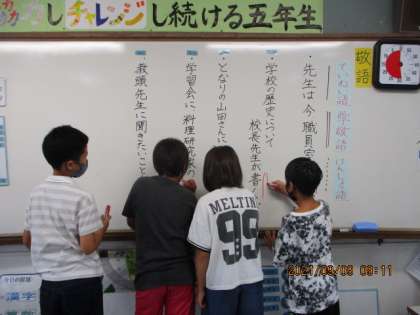 しチャレンジし続ける五年生
敬語
ていねい語 尊敬語 けんじょう語
・先生は今職員室
・学校の歴史について
校長先生が書
・となりの山田さんに
・学習会に料理研究家の
・教頭先生に聞きたいこと
MELTIN
99
今日の記録
漢字
2021/09/08 08:11